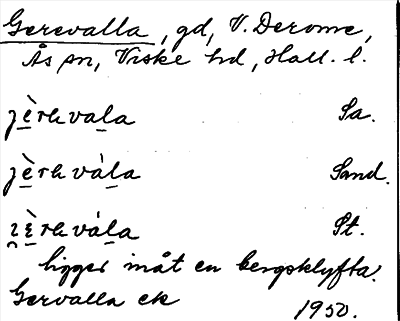 Gerevalla, gd, V. Derome,
Ås sn, Viske hd, Hall. l.
jèravala Sa.
jèravàla Sand.
ɪ̯èravála St.
ligger inåt en bergsklyfta.
Gervalla ek 1950.